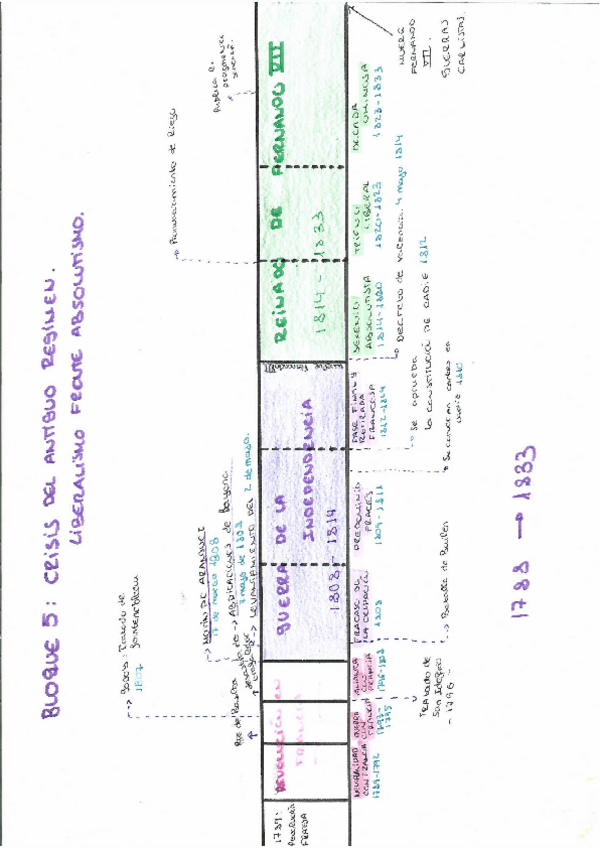 BLOQUE 5: CRISIS DEL ANTIGUO REGIMEN.
LIBERALISMO FRENTE ABSOLUTISMO.
Tratado de
Fontainebleau
1807
MOTÍN DE ARANJUEZ
17 de marzo 1808
ABDICACIONES de Bayona
LEVANTAMIENTO DEL 2 de mayo.
Pronunciamiento de Riego
Publica
1789:
FRANCIA
REVOLUCIÓN EN
FRANCIA
GUERRA DE LA
INDEPENDENCIA
1808 - 1814
REINADO DE FERNANDO VII
1814 - 1833
NEUTRALIDAD
1789-1792
GUERRA
CON
FRANCIA
1793-
1795
ALIANZA
CON
FRANCIA
1796-1808
FRACASO DE
LA OCUPACIÓN
1808
PREDOMINIO
FRACES
1809-1811
FASE FINAL Y
RETIRADA
FRANCESA
1812-1814
SEXENIO
ABSOLUTISTA
1814-1820
TRIENIO
LIBERAL
1820-1823
DECADA
OMINOSA
1823-1833
TRATADO DE
San Ildefonso
- 1796 -
Batalla de Bailen
Se convocan cortes en
1810
Se aprueba
la CONSTITUCIÓ DE CADIE 1812
DECRETO de Valencia. 4 mayo 1814
MUERE
FERNANDO
VII.
GUERRAS
CARLISTAS.
1788 → 1833